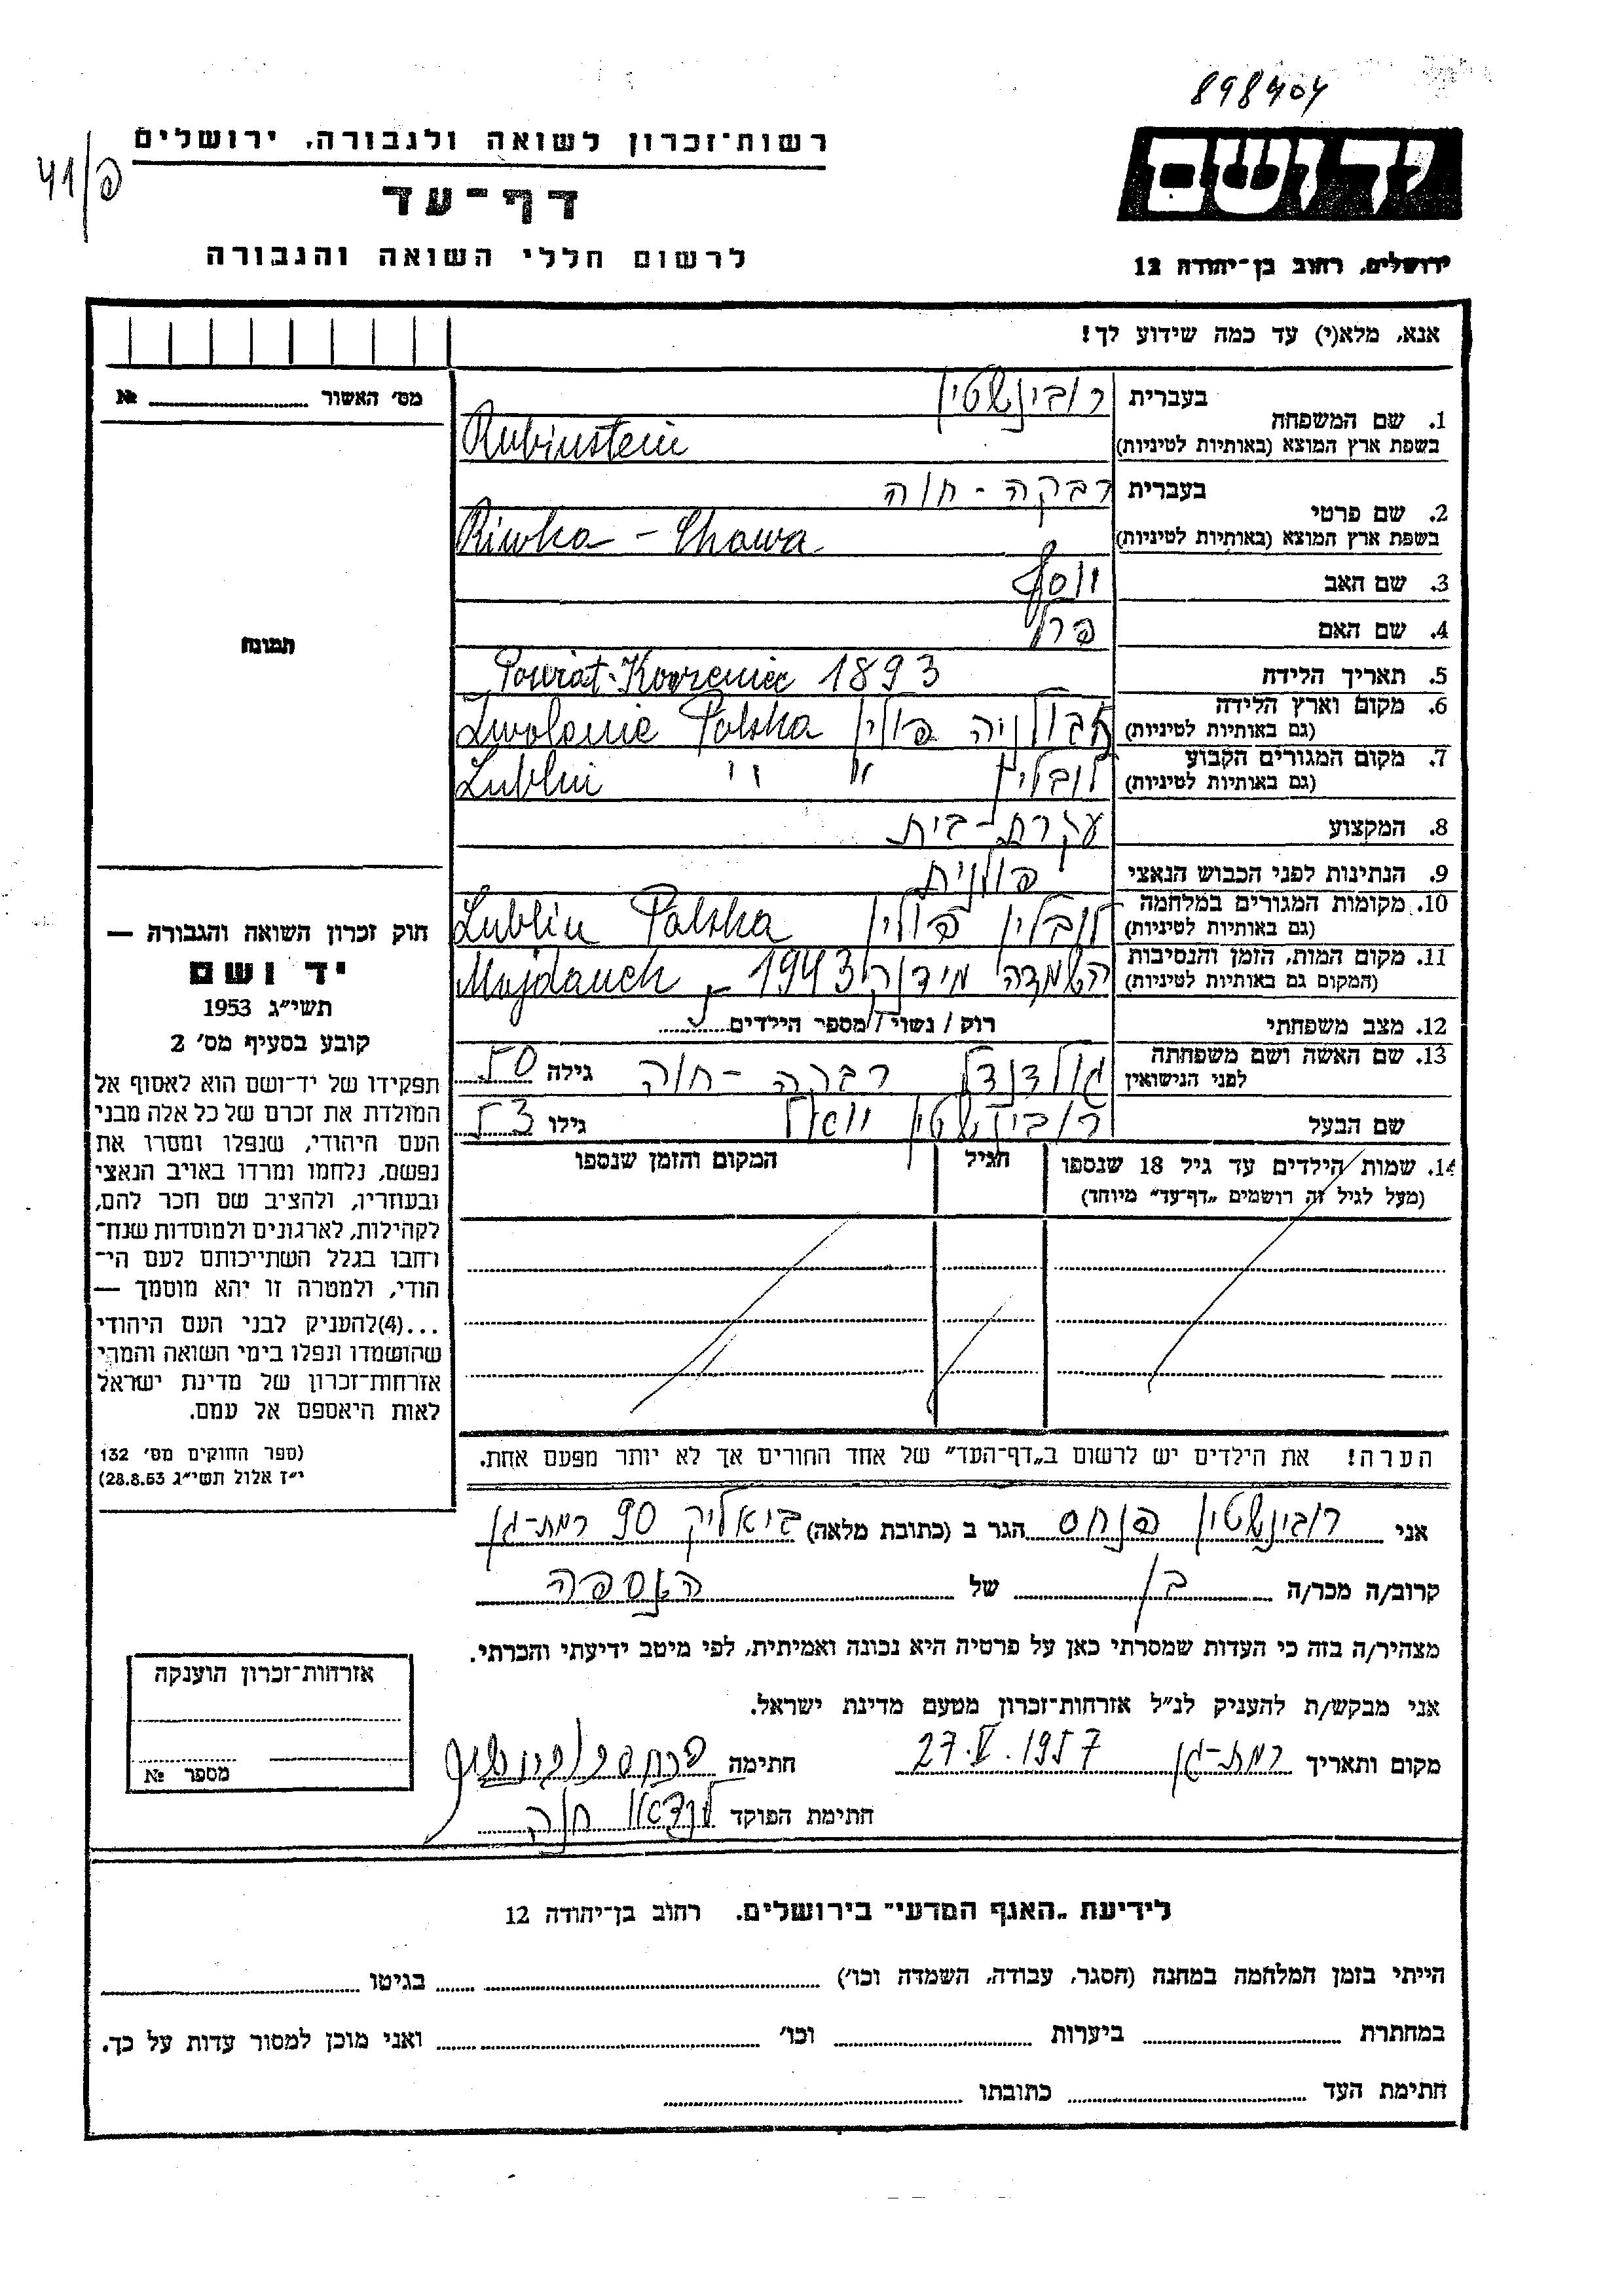 898404
רשות־זכרון לשואה ולגבורה, ירושלים
41/פ
דף־עד
לרשום חללי השואה והגבורה
יד ושם
ירושלים, רחוב בן־יהודה 12
אנא, מלא(י) עד כמה שידוע לך!
מס׳ האשור № 
תמונה
1. שם המשפחה בעברית רובינשטין
בשפת ארץ המוצא (באותיות לטיניות) Rubinstein
2. שם פרטי בעברית רבקה - חוה
בשפת ארץ המוצא (באותיות לטיניות) Riwka - Chawa
3. שם האב יוסף
4. שם האם פרל
5. תאריך הלידה 1893 Powiat-
6. מקום וארץ הלידה
(גם באותיות לטיניות) זבולניה פולין Zwolenie Polska
7. מקום המגורים הקבוע
(גם באותיות לטיניות) לובלין " " Lublin
8. המקצוע עקרת-בית
9. הנתינות לפני הכבוש הנאצי פולנית
10. מקומות המגורים במלחמה
(גם באותיות לטיניות) לובלין פולין Lublin Polska
11. מקום המות, הזמן והנסיבות
(המקום גם באותיות לטיניות) השמדה מידנק 1943 - Majdanek
12. מצב משפחתי רוק / נשוי / מספר הילדים
13. שם האשה ושם משפחתה
לפני הנישואין רבקה - חוה גילה 50
שם הבעל רובינשטין יואל גילו 53
14. שמות הילדים עד גיל 18 שנספו הגיל המקום והזמן שנספו
(מעל לגיל זה רושמים „דף־עד" מיוחד)
הערה! את הילדים יש לרשום ב„דף־העד" של אחד ההורים אך לא יותר מפעם אחת.
חוק זכרון השואה והגבורה —
יד ושם
תשי״ג 1953
קובע בסעיף מס׳ 2
תפקידו של יד־ושם הוא לאסוף אל
המולדת את זכרם של כל אלה מבני
העם היהודי, שנפלו ומסרו את
נפשם, נלחמו ומרדו באויב הנאצי
ובעוזריו, ולהציב שם וזכר להם,
לקהילות, לארגונים ולמוסדות שנח־
רחבו בגלל השתייכותם לעם הי־
הודי, ולמטרה זו יהא מוסמך —
...(4)להעניק לבני העם היהודי
שהושמדו ונפלו בימי השואה והמרי
אזרחות־זכרון של מדינת ישראל
לאות היאספם אל עמם.
(ספר החוקים מס׳ 132
י״ז אלול תשי״ג 28.8.53)
אני רובינשטין פנחס הגר ב (כתובת מלאה) ביאליק 90 רמת-גן
קרוב/ה מכר/ה בן של הנספה
מצהיר/ה בזה כי העדות שמסרתי כאן על פרטיה היא נכונה ואמיתית, לפי מיטב ידיעתי והכרתי.
אני מבקש/ת להעניק לנ״ל אזרחות־זכרון מטעם מדינת ישראל.
מקום ותאריך רמת-גן 27.V.1957 חתימה פנחס רובינשטין
חתימת הפוקד לנדאו חוה
אזרחות־זכרון הוענקה
מספר №
לידיעת „האגף המדעי" בירושלים. רחוב בן־יהודה 12
הייתי בזמן המלחמה במחנה (הסגר, עבודה, השמדה וכו׳) בגיטו
במחתרת ביערות וכו׳ ואני מוכן למסור עדות על כך.
חתימת העד כתובתו